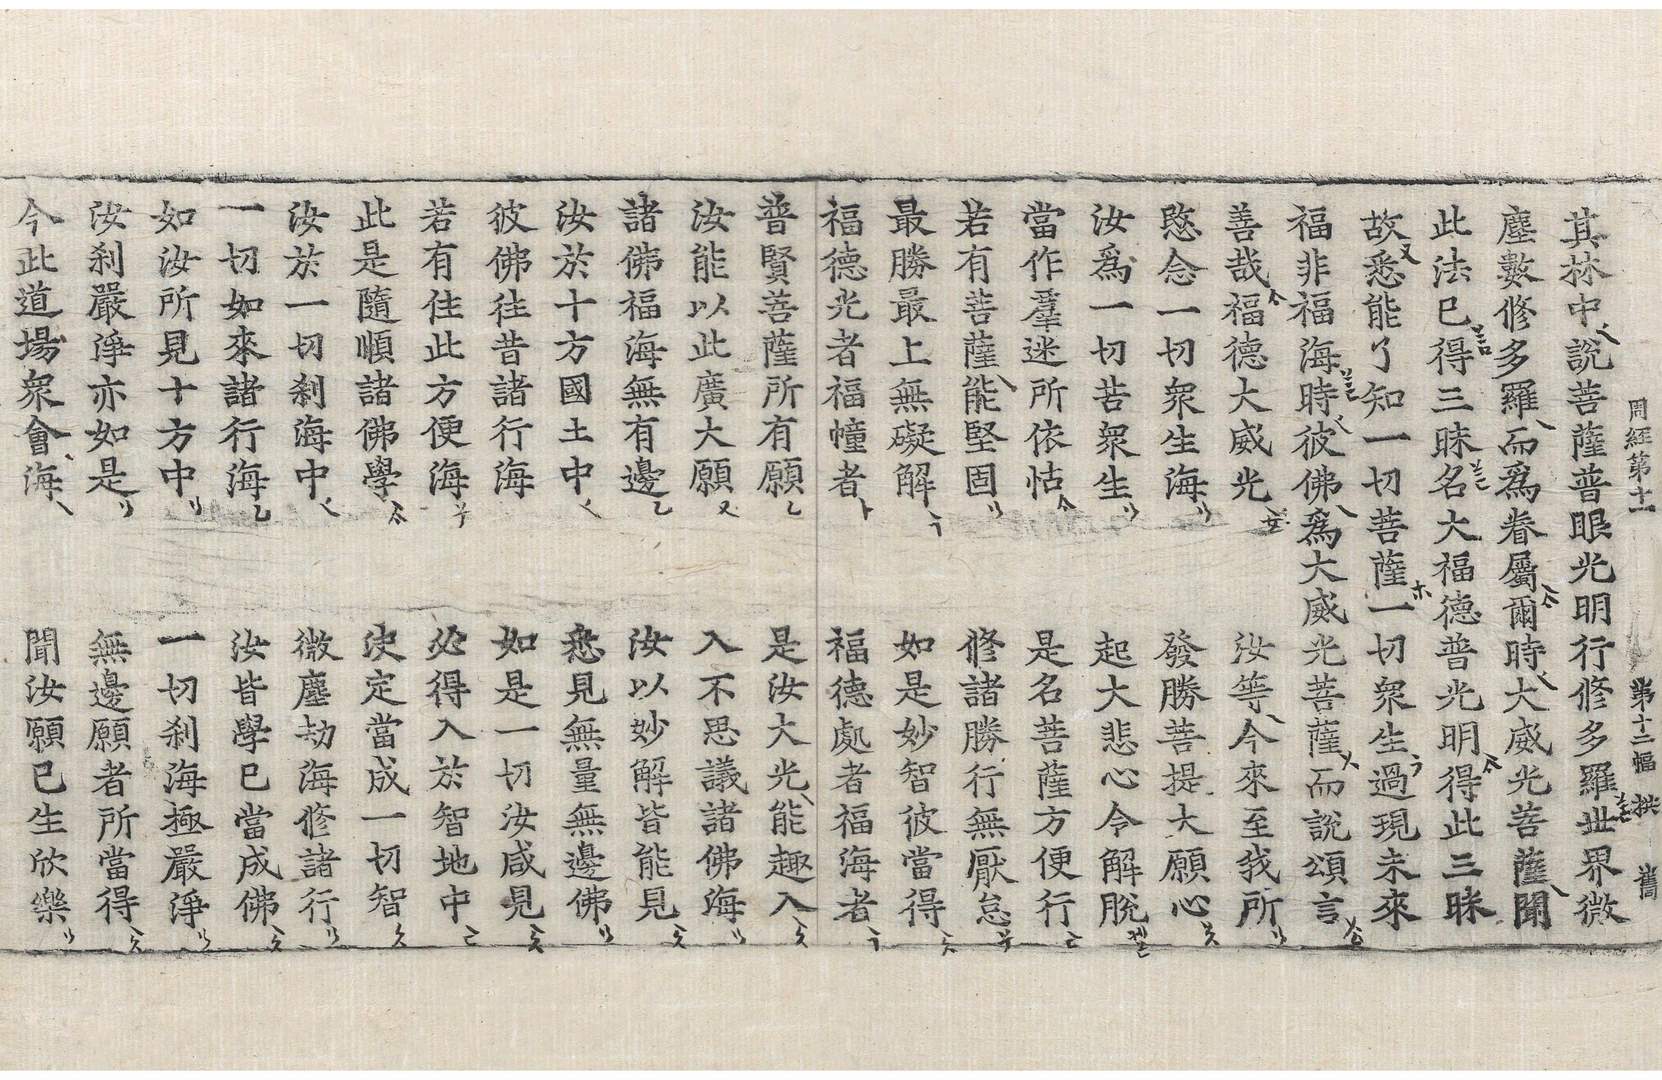 周經第十一 第十二幅 拱
其林中說菩薩普眼光明行修多羅世界微
塵數修多羅而爲眷屬爾時大威光菩薩聞
此法已得三昧名大福德普光明得此三昧
故悉能了知一切菩薩一切衆生過現未來
福非福海時彼佛爲大威光菩薩而說頌言
善哉福德大威光 汝等今來至我所
愍念一切衆生海 發勝菩提大願心
汝爲一切苦衆生 起大悲心令解脫
當作羣迷所依怙 是名菩薩方便行
若有菩薩能堅固 修諸勝行無厭怠
最勝最上無礙解 如是妙智彼當得
福德光者福幢者 福德處者福海者
普賢菩薩所有願 是汝大光能趣入
汝能以此廣大願 入不思議諸佛海
諸佛福海無有邊 汝以妙解皆能見
汝於十方國土中 悉見無量無邊佛
彼佛往昔諸行海 如是一切汝咸見
若有住此方便海 必得入於智地中
此是隨順諸佛學 決定當成一切智
汝於一切剎海中 微塵劫海修諸行
一切如來諸行海 汝皆學已當成佛
如汝所見十方中 一切剎海極嚴淨
汝剎嚴淨亦如是 無邊願者所當得
今此道場衆會海 聞汝願已生欣樂